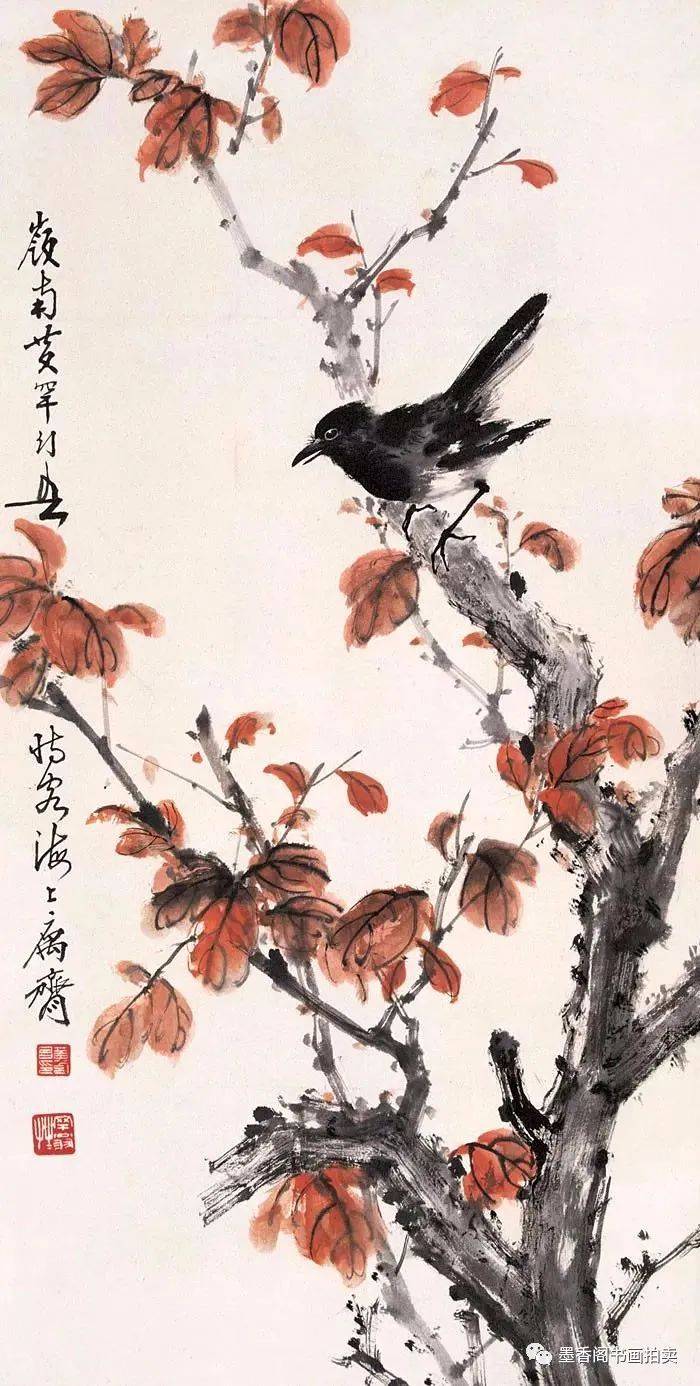 嶺南黄罕幻
時客海上寓齋
墨香阁书画拍卖